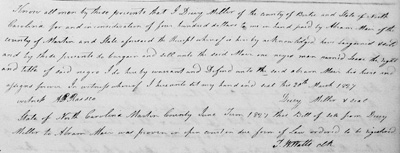 Know all men by these presents that I Drury Miller of the county of Burke and State of North
Carolina for and in consideration of four hundred dollars to me in hand paid by Abram Moore of the
county of Macon and State aforesaid the Receipt whereof is hereby acknowledged have bargained sold
and by these presents do bargain and sell unto the said Moore one negro named the right
and title of said negro I do hereby warrant and Defend unto the said Abram Moore his heirs and
assigns forever. In witness whereof I hereunto set my hand and seal this 20th March 1837
witness Drury Miller seal
State of North Carolina Macon County June Term 1837 this Bill of sale from Drury
Miller to Abram Moore was proven in open court in due form of law ordered to be registered
clk